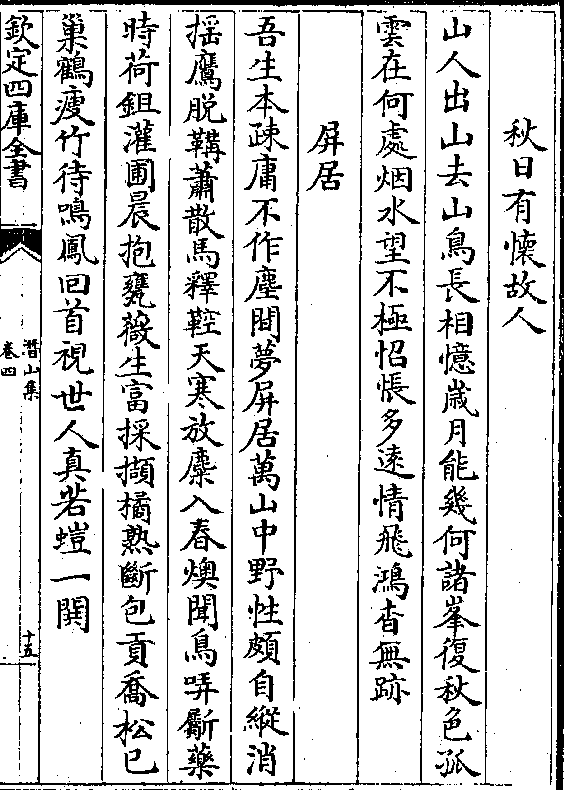 秋日有懷故人
山人出山去山鳥長相憶歳月能幾何諸峯復秋色孤
雲在何處烟水望不極怊悵多逺情飛鴻杳無跡
屏居
吾生本疎庸不作塵間夢屏居萬山中野性頗自縱消
揺鷹脱鞲蕭散馬釋鞚天寒放麋入春燠聞鳥哢斸藥
時荷鉏灌圃晨抱甕薇生富採擷橘熟斷包貢喬松已
巢鶴瘦竹待鳴鳳回首視世人真若螘一鬨
欽定四庫全書
潛山集
卷四
十五